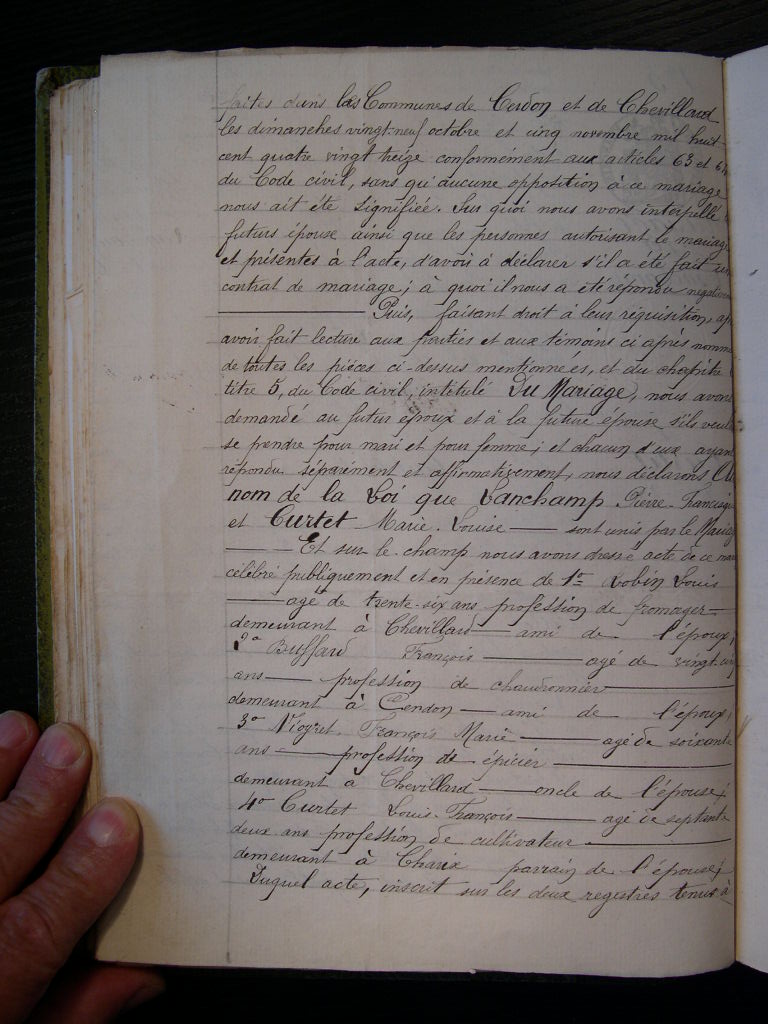 faites dans les Communes de Cerdon et de Chevillard
les dimanches vingt-neuf octobre et cinq novembre mil huit
cent quatre vingt treize conformément aux articles 63 et 64
du Code civil, sans qu'aucune opposition à ce mariage
nous ait été signifiée. Sur quoi nous avons interpellé
futurs épouse ainsi que les personnes autorisant le mariage
et présentes à l'acte, d'avoir à déclarer s'il a été fait un
contrat de mariage; à quoi il nous a été répondu
Puis, faisant droit à leur réquisition,
avoir fait lecture aux parties et aux témoins ci après
de toutes les pièces ci-dessus mentionnées, et du chapitre
titre 5, du Code civil, intitulé Du Mariage, nous
demandé au futur époux et à la future épouse s'ils
se prendre pour mari et pour femme; et chacun d'eux ayant
répondu séparément et affirmativement, nous déclarons Au
nom de la Loi que Vanchamp Pierre
et Curtet Marie-Louise sont unis par le
Et sur le champ nous avons dressé acte de ce
célébré publiquement et en présence de 1º Robin Louis
agé de trente-six ans profession de fromager
demeurant à Chevillard ami de l'époux;
2º Buffard François agé de vingt
ans profession de chaudronnier
demeurant à Cerdon ami de l'époux;
3º François Marie agé de soixante
ans profession de épicier
demeurant à Chevillard oncle de l'épouse;
4º Curtet Louis-François agé de septante
deux ans profession de cultivateur
demeurant à Charix parrain de l'épouse;
Duquel acte, inscrit sur les deux registres tenus à